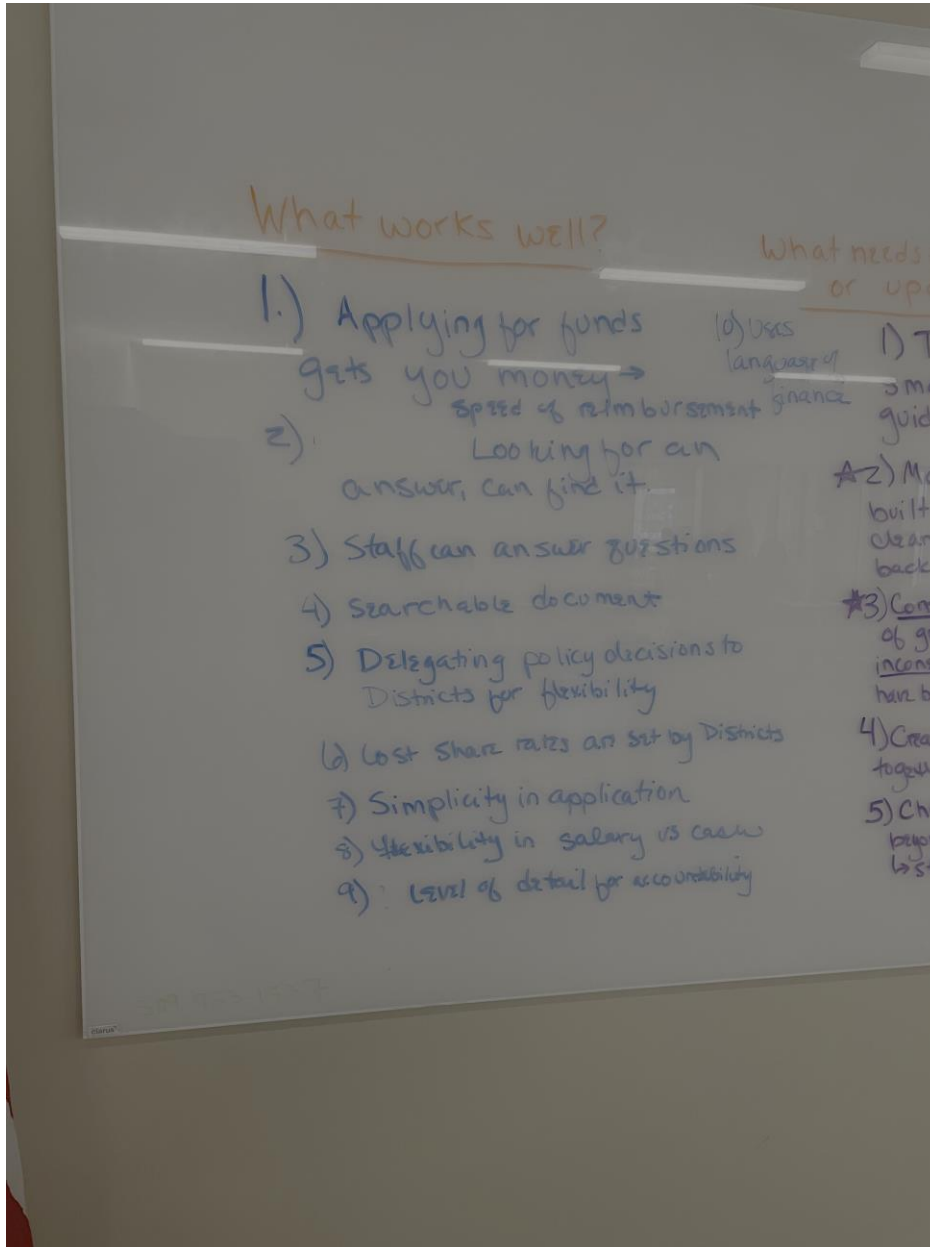 What works well?
1.) Applying for funds
gets you money →
speed of reimbursement
2)
Looking for an
answer, can find it.
3) Staff can answer questions
4) Searchable document
5) Delegating policy decisions to
Districts for flexibility
6) Cost Share rates are set by Districts
7) Simplicity in application
8) flexibility in salary vs cash
9) Level of detail for accountability
10) Uses
language of
finance
What needs
or up
1) T
guid
☆2) Mo
built
clear
back
★3) Con
of g
incons
have b
4) Crea
toge
5) Ch
beyo
↳ s